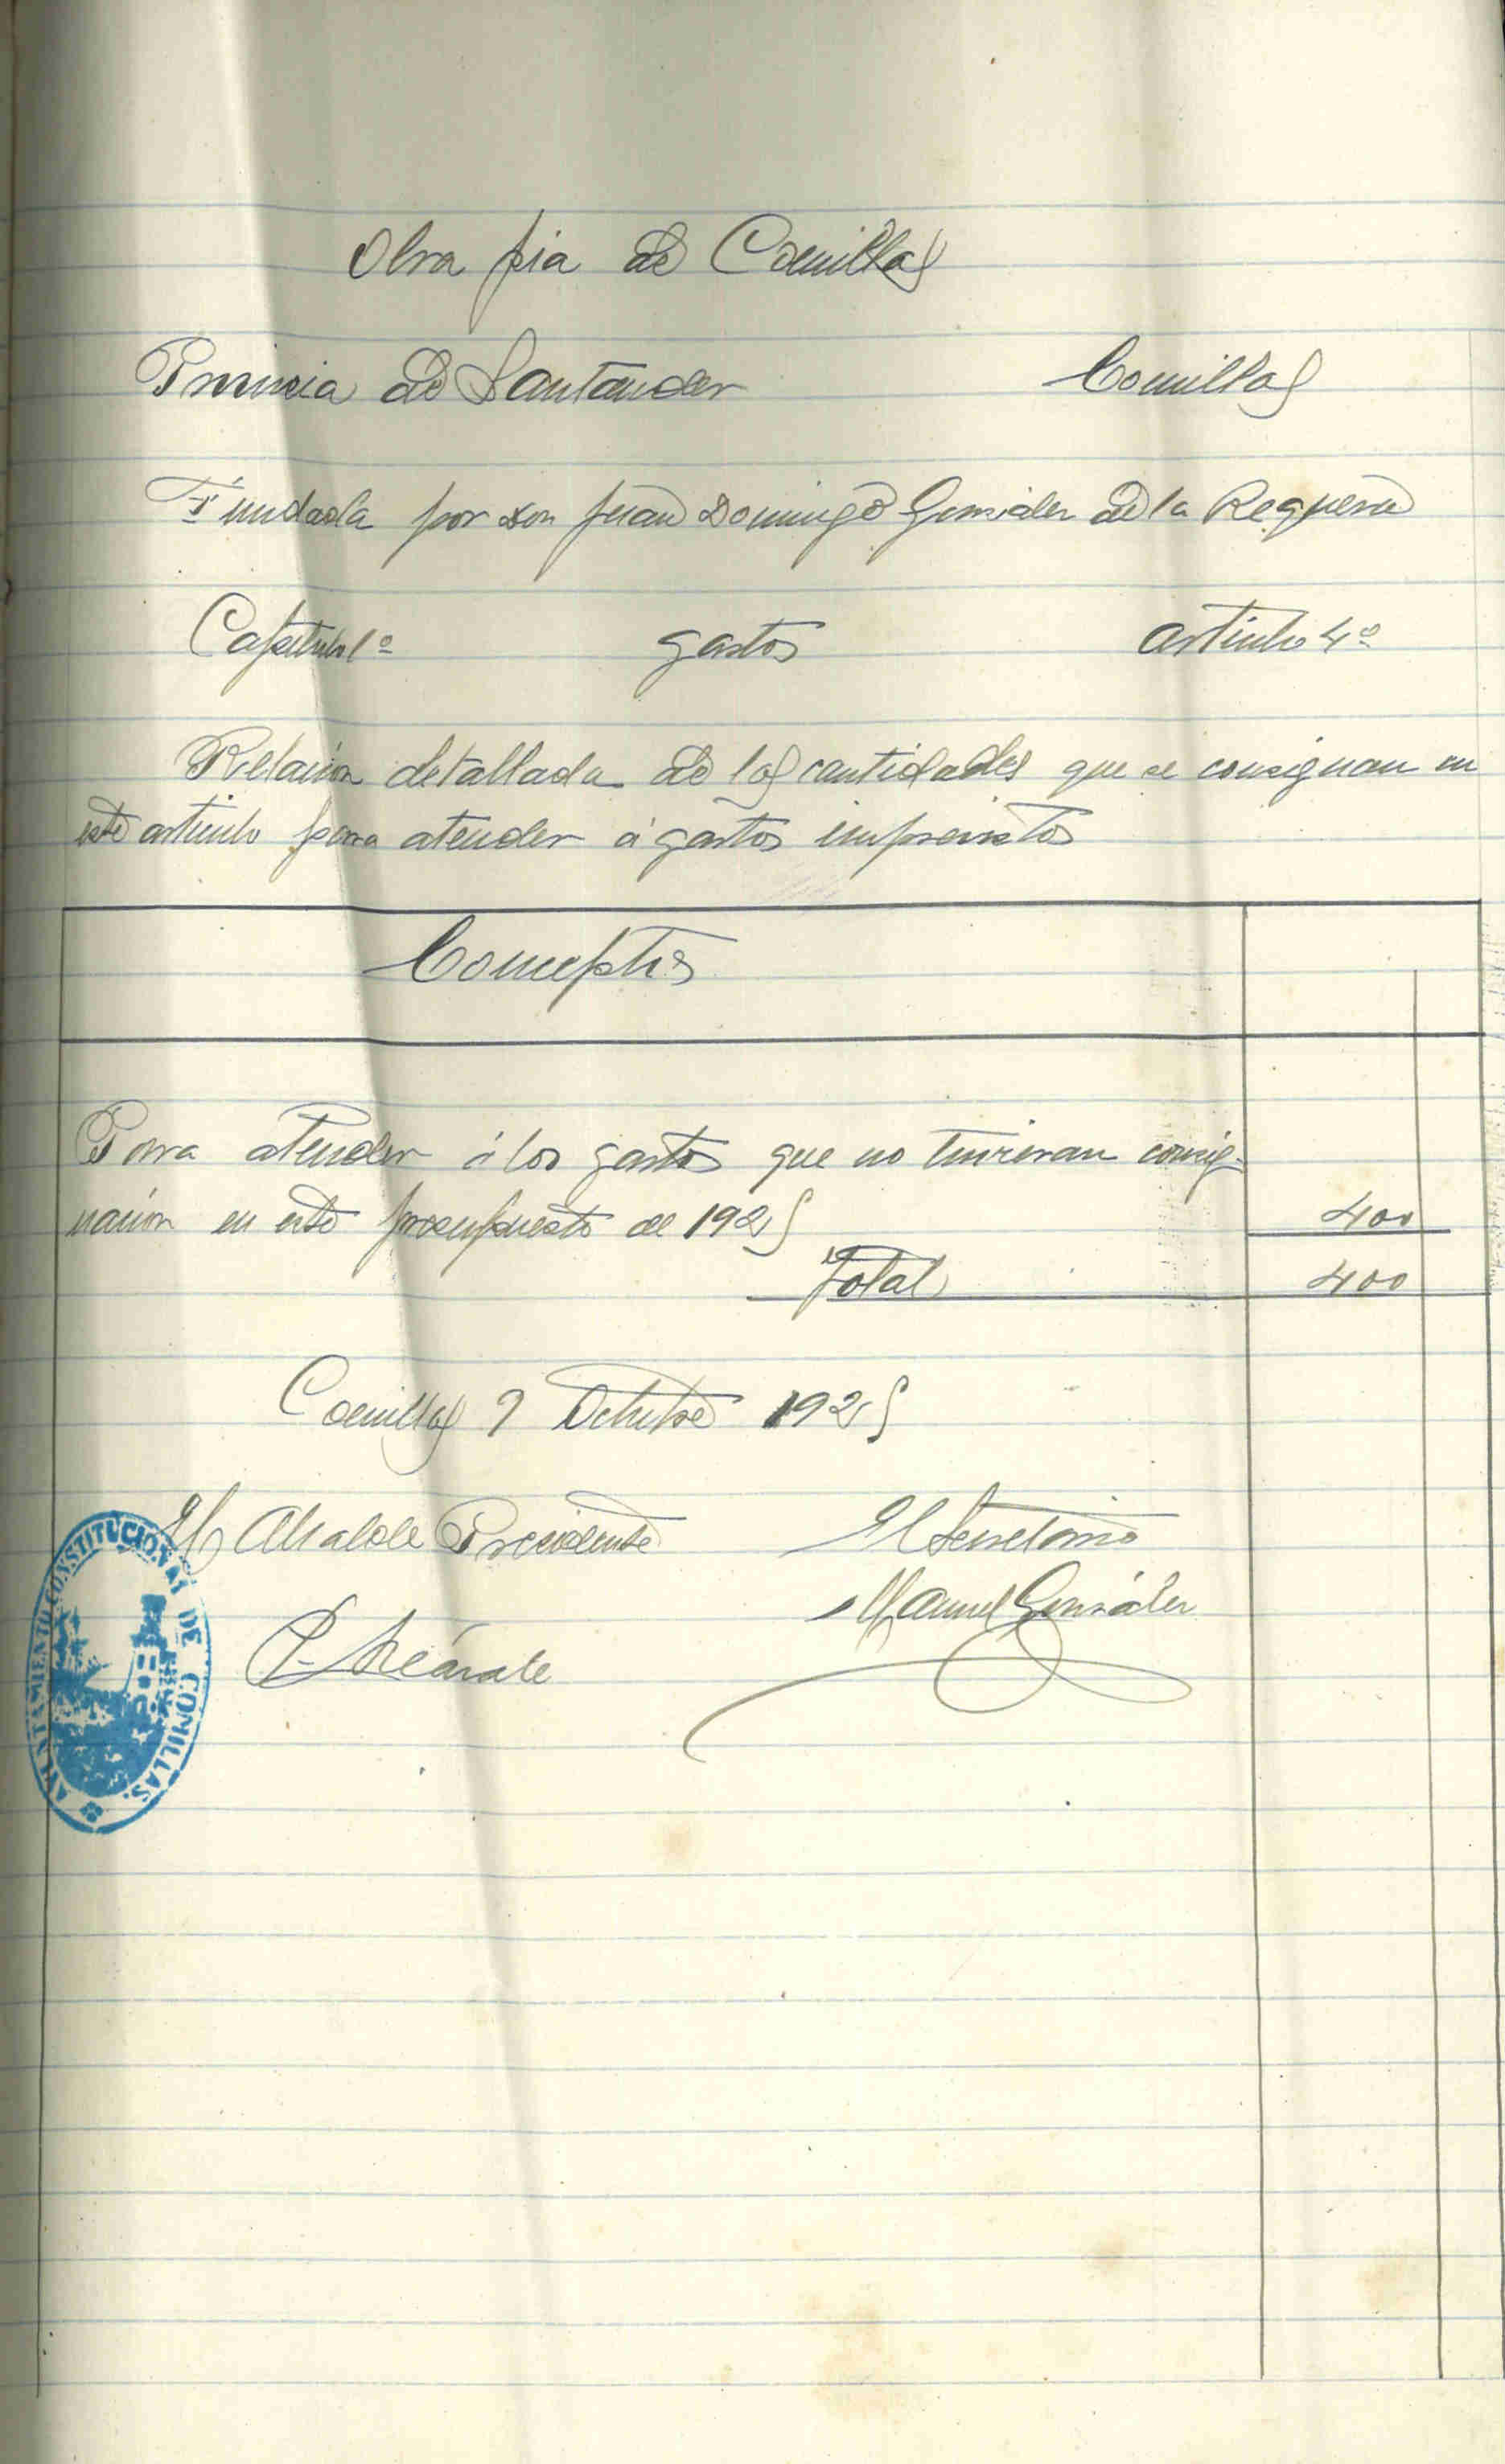 Obra pia de Comillas
Provincia de Santander Comillas
Fundada por don Juan Domingo González de la Reguera
Capítulo 1º gastos artículo 4º
Relación detallada de las cantidades que se consignan en
este artículo para atender á gastos imprevistos
Conceptos
Para atender á los gastos que no tuvieran consig-
nación en este presupuesto de 1925 400
Total 400
Comillas 9 Octubre 1925
El Alcalde Presidente El Secretario
Manuel González
AYUNTAMIENTO CONSTITUCIONAL DE COMILLAS.